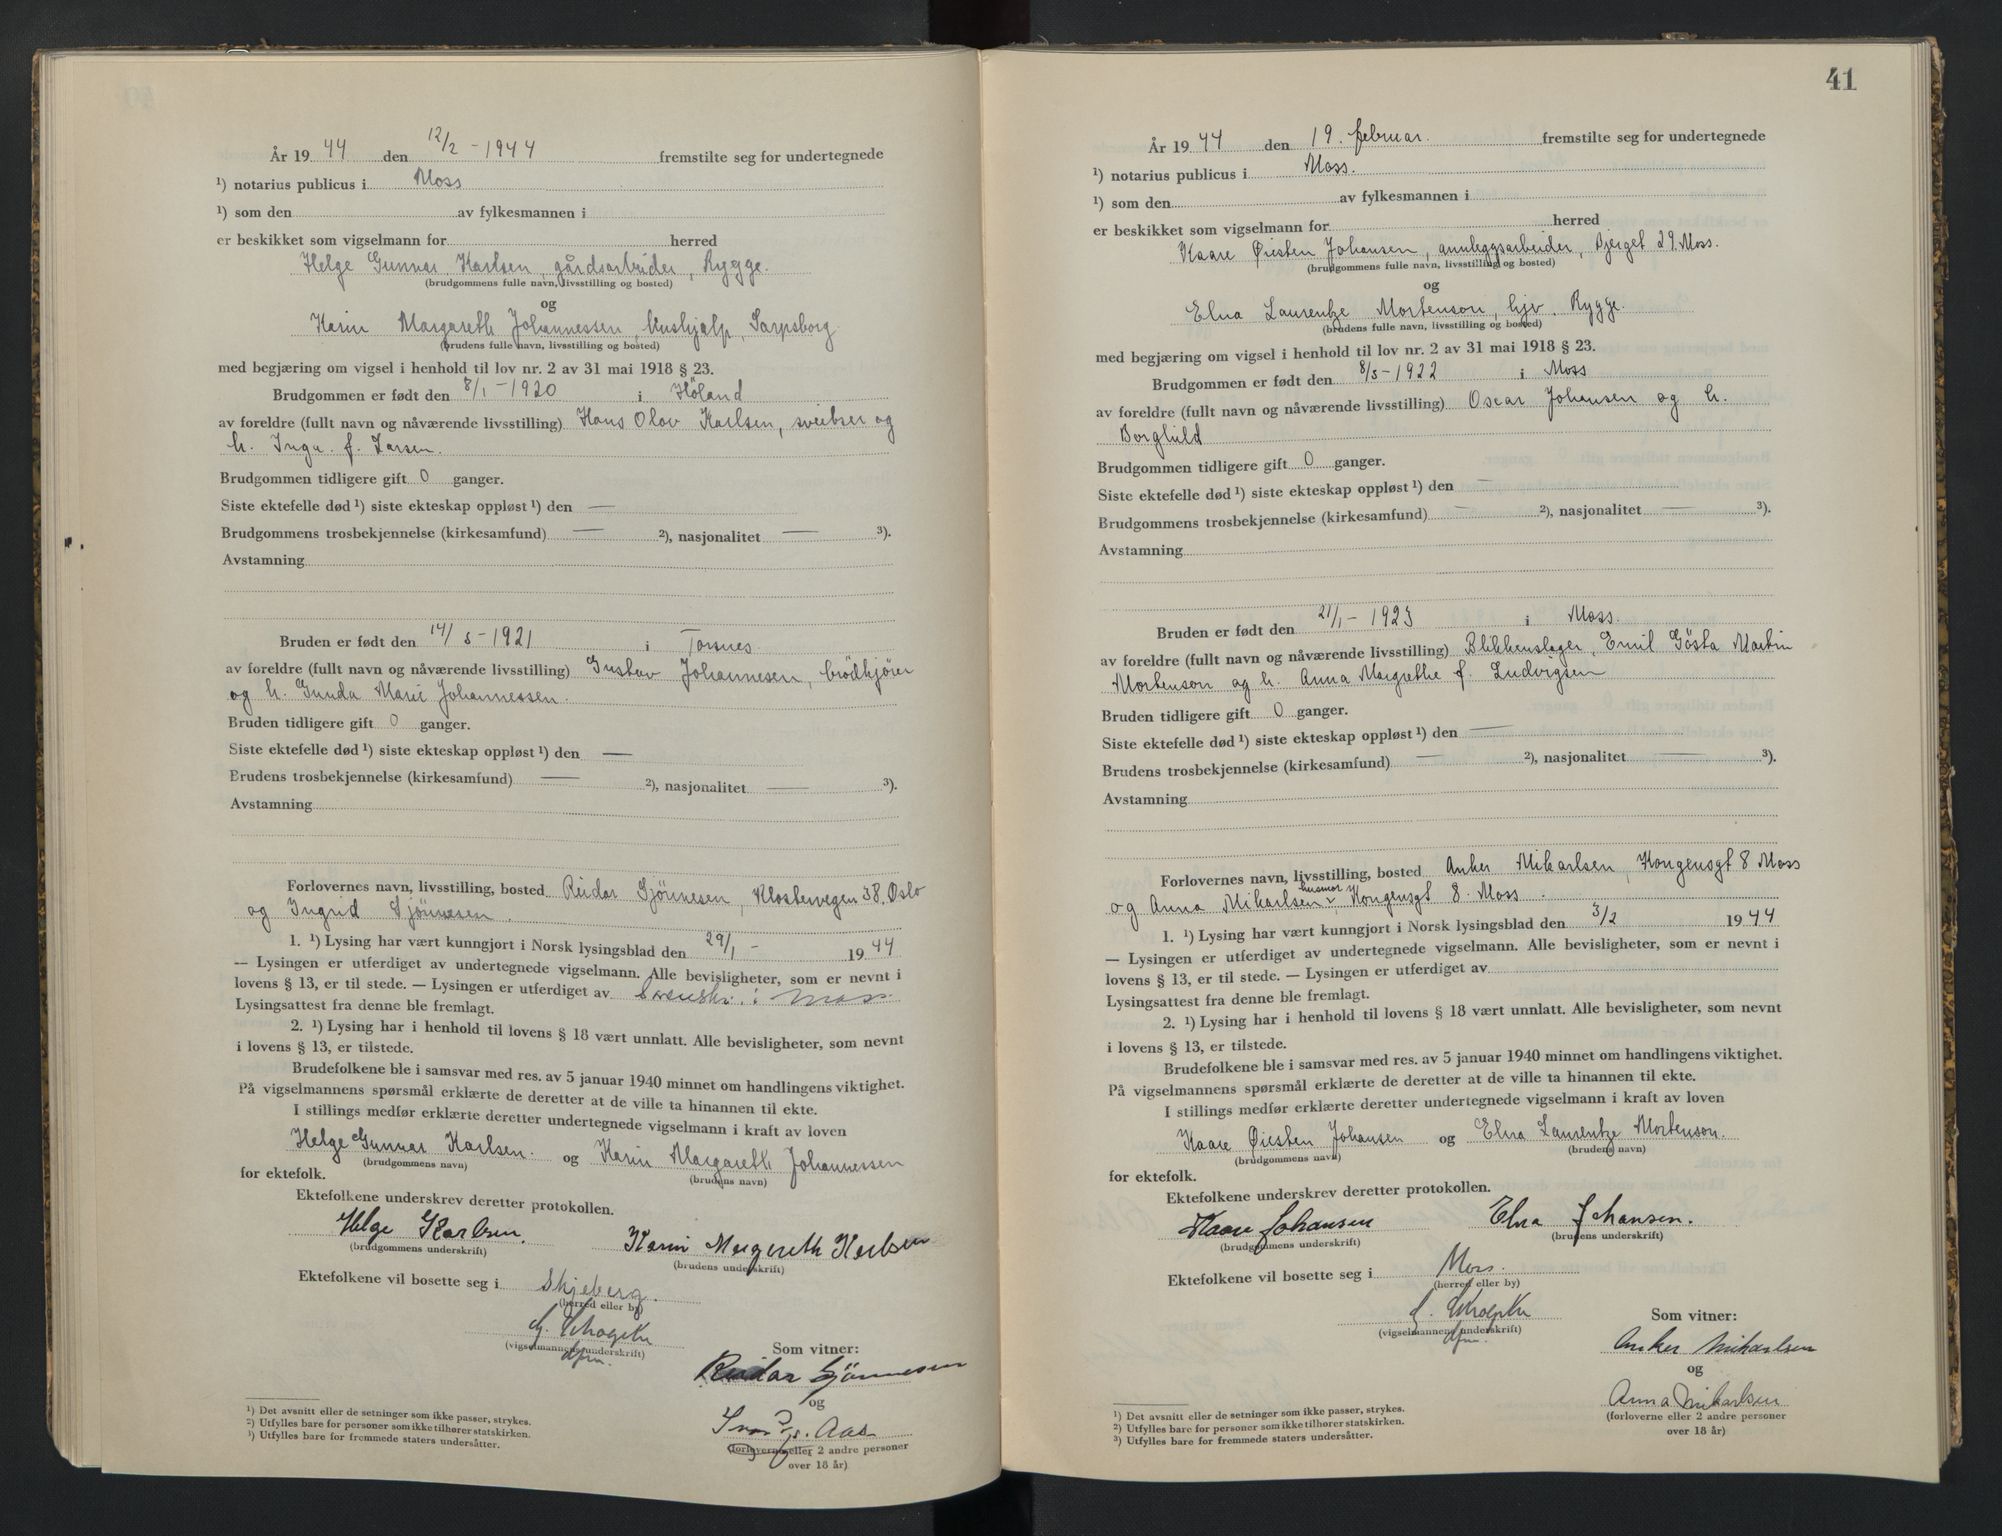 År 1944 den 12/2 - 1944 fremstilte seg for undertegnede
1) notarius publicus i Moss
1) som den av fylkesmannen i
er beskikket som vigselmann for herred
Helge Gunnar Karlsen, gårdsarbeider, Rygge.
(brudgommens fulle navn, livsstilling og bosted)
og
Karin Margareth Johannessen, hushjelp, Sarpsborg
(brudens fulle navn, livsstilling og bosted)
med begjæring om vigsel i henhold til lov nr. 2 av 31 mai 1918 § 23.
Brudgommen er født den 8/1 - 1920 i Höland
av foreldre (fullt navn og nåværende livsstilling) Hans Olav Karlsen, sveitser og
h. Inga f. Larsen.
Brudgommen tidligere gift 0 ganger.
Siste ektefelle død 1) siste ekteskap oppløst 1) den —
Brudgommens trosbekjennelse (kirkesamfund) — 2), nasjonalitet — 3).
Avstamning
Bruden er født den 14/5 - 1921 i Torsnes.
av foreldre (fullt navn og nåværende livsstilling) Gustav Johannesen, brödkjörer
og h. Gunda Marie Johannessen.
Bruden tidligere gift 0 ganger.
Siste ektefelle død 1) siste ekteskap oppløst 1) den —
Brudens trosbekjennelse (kirkesamfund) — 2), nasjonalitet — 3).
Avstamning
Forlovernes navn, livsstilling, bosted Reidar Gjönnesen, Klostervegen 38, Oslo
og Ingrid Gjönnesen.
1. 1) Lysing har vært kunngjort i Norsk lysingsblad den 29/1 - 1944
— Lysingen er utferdiget av undertegnede vigselmann. Alle bevisligheter, som er nevnt i
lovens § 13, er til stede. — Lysingen er utferdiget av Sorenskr. i Moss
Lysingsattest fra denne ble fremlagt.
2. 1) Lysing har i henhold til lovens § 18 vært unnlatt. Alle bevisligheter, som nevnt
i lovens § 13, er tilstede.
Brudefolkene ble i samsvar med res. av 5 januar 1940 minnet om handlingens viktighet.
På vigselmannens spørsmål erklærte de deretter at de ville ta hinannen til ekte.
I stillings medfør erklærte deretter undertegnede vigselmann i kraft av loven
Helge Gunnar Karlsen. og Karin Margareth Johannessen
(brudgommens navn) (brudens navn)
for ektefolk.
Ektefolkene underskrev deretter protokollen.
Helge Karlsen. Karin Margareth Karlsen
(brudgommens underskrift) (brudens underskrift)
Ektefolkene vil bosette seg i Skjeberg.
(herred eller by)
(vigselmannens underskrift)
dfm.
Som vitner:
Reidar Gjönnesen
og
Aas
(forloverne eller 2 andre personer
over 18 år)
1) Det avsnitt eller de setninger som ikke passer, strykes.
2) Utfylles bare for personer som ikke tilhører statskirken.
3) Utfylles bare for fremmede staters undersåtter.
41
År 1944 den 19. februar. fremstilte seg for undertegnede
1) notarius publicus i Moss.
1) som den av fylkesmannen i
er beskikket som vigselmann for herred
Kaare Øiesten Johansen, annleggsarbeider, Bjerget 29. Moss.
(brudgommens fulle navn, livsstilling og bosted)
og
Elna Laurentze Mortenson, hjv. Rygge.
(brudens fulle navn, livsstilling og bosted)
med begjæring om vigsel i henhold til lov nr. 2 av 31 mai 1918 § 23.
Brudgommen er født den 8/5 - 1922 i Moss
av foreldre (fullt navn og nåværende livsstilling) Oscar Johansen og h.
Borghild
Brudgommen tidligere gift 0 ganger.
Siste ektefelle død 1) siste ekteskap oppløst 1) den —
Brudgommens trosbekjennelse (kirkesamfund) — 2), nasjonalitet — 3).
Avstamning
Bruden er født den 21/1 - 1923 i Moss.
av foreldre (fullt navn og nåværende livsstilling) Blikkenslager, Emil Gösta Martin
Mortenson og h. Anna Margrethe f. Ludvigsen
Bruden tidligere gift 0 ganger.
Siste ektefelle død 1) siste ekteskap oppløst 1) den —
Brudens trosbekjennelse (kirkesamfund) — 2), nasjonalitet — 3).
Avstamning
Forlovernes navn, livsstilling, bosted Anker Mikarlsen, Kongensgt 8 Moss
og Anna Mikarlsen, husmor Kongensgt 8. Moss.
1. 1) Lysing har vært kunngjort i Norsk lysingsblad den 3/2 1944
— Lysingen er utferdiget av undertegnede vigselmann. Alle bevisligheter, som er nevnt i
lovens § 13, er til stede. — Lysingen er utferdiget av
Lysingsattest fra denne ble fremlagt.
2. 1) Lysing har i henhold til lovens § 18 vært unnlatt. Alle bevisligheter, som nevnt
i lovens § 13, er tilstede.
Brudefolkene ble i samsvar med res. av 5 januar 1940 minnet om handlingens viktighet.
På vigselmannens spørsmål erklærte de deretter at de ville ta hinannen til ekte.
I stillings medfør erklærte deretter undertegnede vigselmann i kraft av loven
Kaare Øiesten Johansen og Elna Laurentze Mortenson.
(brudgommens navn) (brudens navn)
for ektefolk.
Ektefolkene underskrev deretter protokollen.
Kaare Johansen Elna Johansen.
(brudgommens underskrift) (brudens underskrift)
Ektefolkene vil bosette seg i Moss.
(herred eller by)
(vigselmannens underskrift)
dfm.
Som vitner:
Anker Mikarlsen
og
Anna Mikarlsen
(forloverne eller 2 andre personer
over 18 år)
1) Det avsnitt eller de setninger som ikke passer, strykes.
2) Utfylles bare for personer som ikke tilhører statskirken.
3) Utfylles bare for fremmede staters undersåtter.